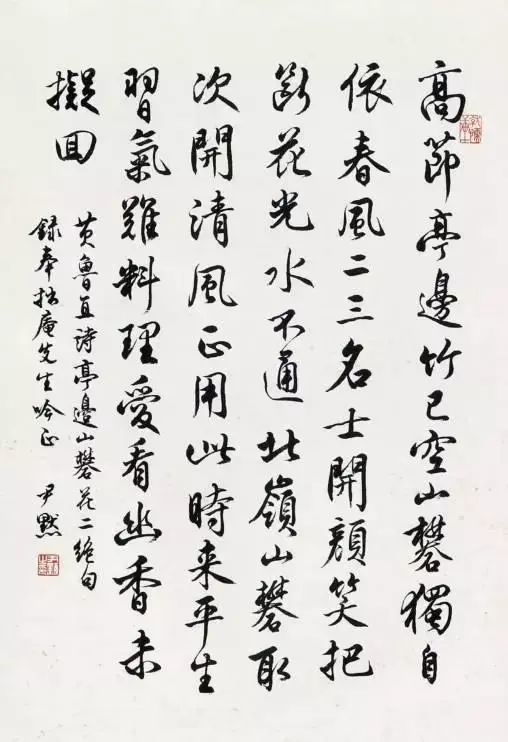 高節亭邊竹已空山礬獨自
依春風二三名士開顏笑把
斷花光水不通北嶺山礬取
次開清風正用此時来平生
習氣難料理愛看幽香未
擬回
黄魯直詩亭邊山礬花二絶句
録奉拙庵先生吟正 尹默